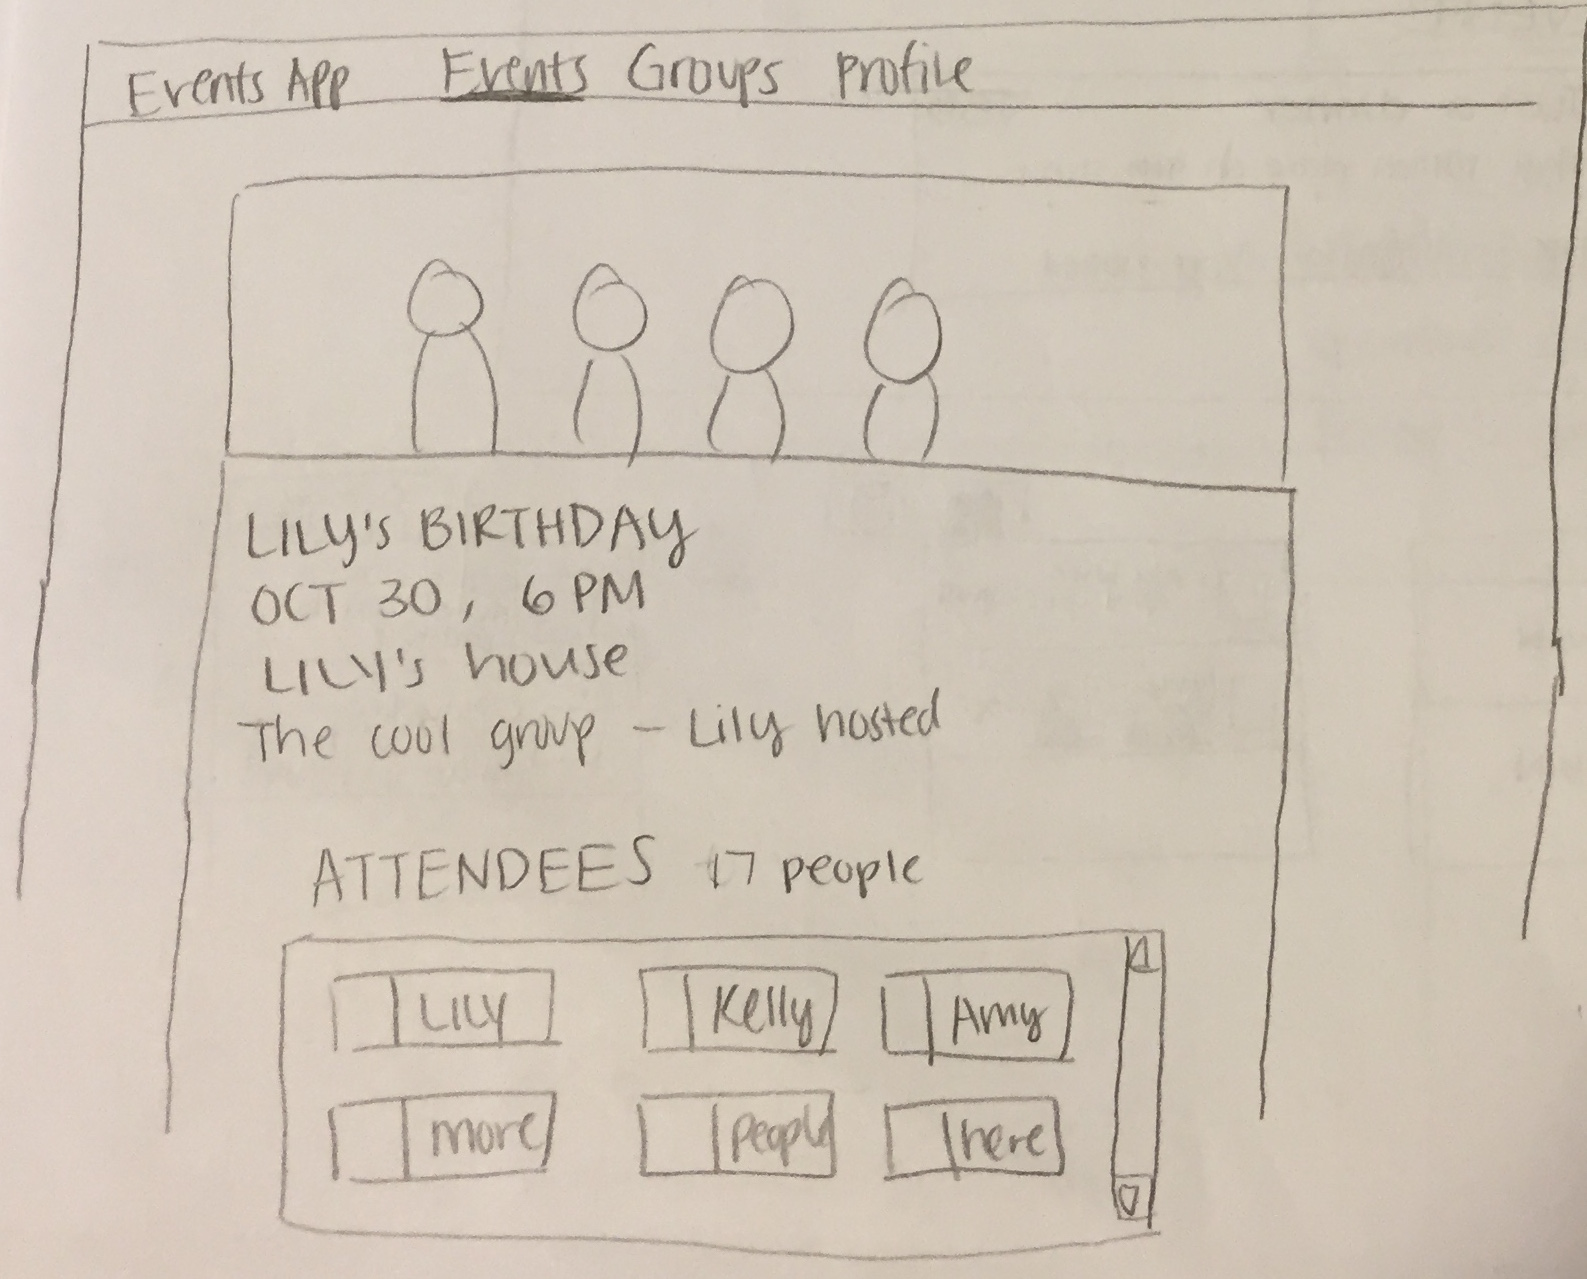 Events App Events Groups Profile
LILY's BIRTHDAY
OCT 30, 6 PM
LILY's house
The cool group - Lily hosted
ATTENDEES 17 people
LILY Kelly Amy
more people here